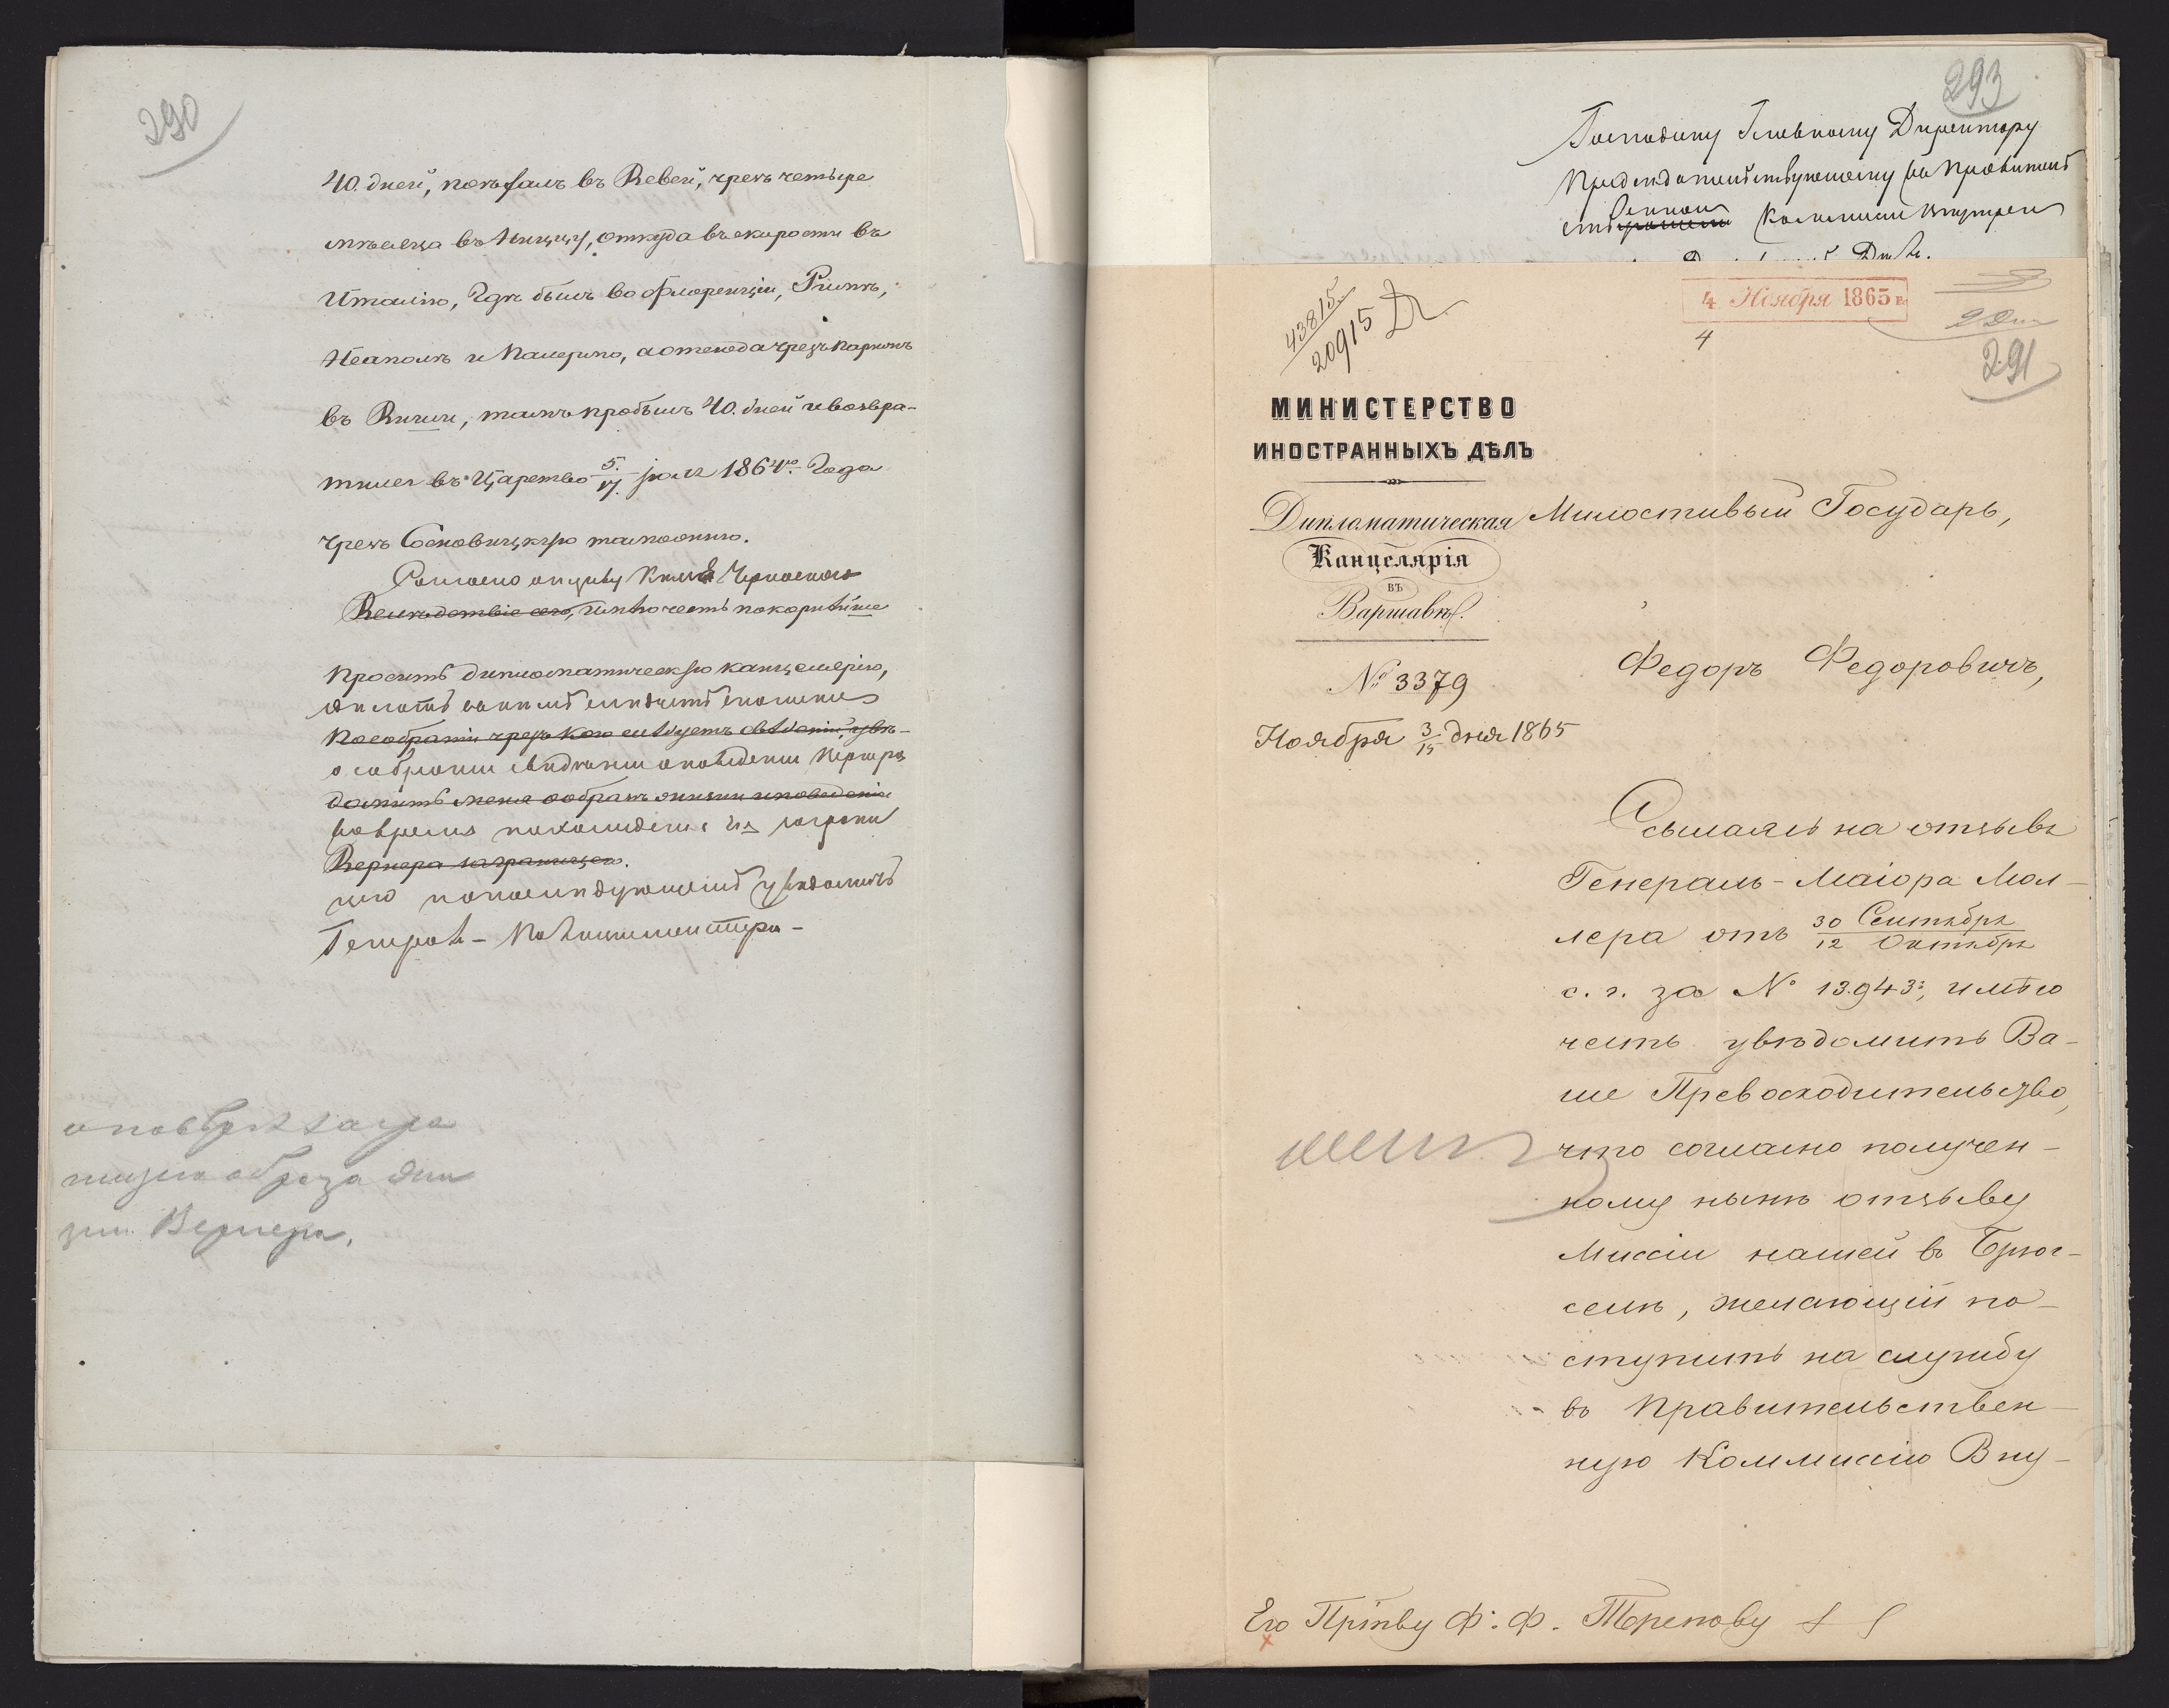 290
40. дней, поѣхалъ въ Вевей, чрезъ четыре
мѣсяца въ Ниццу, откуда въскорости въ
Италію, гдѣ былъ во Флоренціи, Римѣ,
Неаполѣ и Палермо, а оттуда чрезъ Парижъ
въ Виши, тамъ пробылъ 40. дней и возвра-
тился въ Царство 5/17. юля 1864го. Года
чрезъ Сосновицкую таможню.
Согласно отзыву Князя Черкаскаго
Вслѣдствіе сего, имѣю честь покорнѣйше
просить дипломатическую канцелярію,
по собраніи чрезъ кого слѣдуетъ свѣденій, увѣ-
о собраніи свѣдѣній о поведеніи Вернера
домить меня о образѣ жизни и поведеніи
во время нахожденія его заграни
Вернера заграницею.
цею и о послѣдующемъ увѣдомить
Генерал-Полицмейстера-
образа жи
зни Вернера.
293
Господину Главному Директору
Предсѣдательствующему въ Правитель
ственной Коммисіи Внутрен
Дѣлъ.
4 Ноября 1865 г.
4
43815
20915
291
МИНИСТЕРСТВО
ИНОСТРАННЫХЪ ДѢЛЪ
Дипломатическая
Канцелярія
въ
Варшавѣ.
№ 3379
Ноября 3/15 дня 1865
Милостивый Государь,
Федоръ Федоровичъ,
Ссылаясь на отзывъ
Генералъ-Маіора Мол-
лера отъ 30 Сентября / 12 Октября
с. г. за № 13.943, имѣю
честь увѣдомить Ва-
ше Превосходительство,
что согласно получен-
ному нынѣ отзыву
Миссіи нашей въ Брюс-
селѣ, желающій по-
ступить на службу
въ Правительствен-
ную Коммиссію Вну-
Его Пр-ству Ф. Ф. Трепову